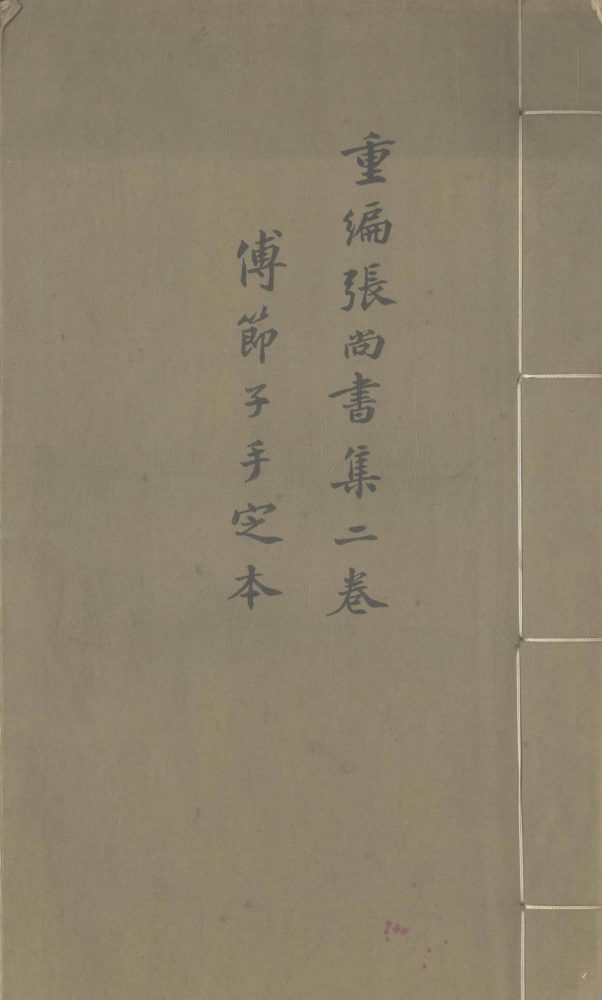 重編張尚書集二卷
傅節子手定本